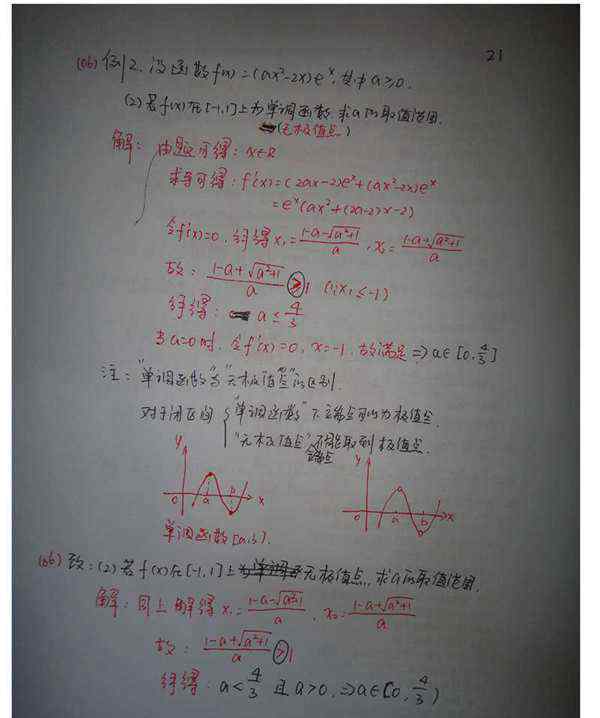 21
(06) 例2. 设函数f(x)=(ax²-2x)eˣ, 其中a≥0.
(2) 若f(x)在[-1,1]上为单调函数, 求a的取值范围.
(无极值点)
解: 由题可得: x∈R
求导可得: f'(x)=(2ax-2)eˣ+(ax²-2x)eˣ
=eˣ(ax²+(2a-2)x-2)
令f'(x)=0, 解得x₁=(1-a-√(a²+1))/a, x₂=(1-a+√(a²+1))/a
故: (1-a+√(a²+1))/a ≥1 (∵x₁≤-1)
解得: a≤4/3
当a=0时, 令f'(x)=0, x=-1, 故满足 ⇒a∈[0,4/3]
注: "单调函数"与"无极值点"的区别.
对于闭区间 { "单调函数"下, 端点可以为极值点.
"无极值点" 不能取到极值点.
含端点
y y
0 a b x 0 a b x
单调函数[a,b].
(06) 改: (2) 若f(x)在[-1,1]上无极值点, 求a的取值范围.
解: 同上解得x₁=(1-a-√(a²+1))/a, x₂=(1-a+√(a²+1))/a
故: (1-a+√(a²+1))/a >1
解得: a<4/3 且a>0, ⇒a∈[0,4/3)